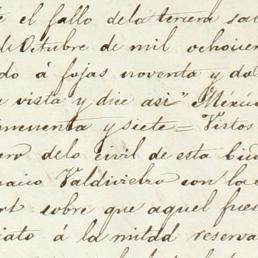 el fallo dela tercera sa
de Octubre de mil ochocien
do á fojas noventa y do
a vista y dice asi" México
incuenta y siete = Vistos
ero delo civil de esta Ciu
nacio Valdivielso con la
sobre que aquel fues
iato á la mitad reserva